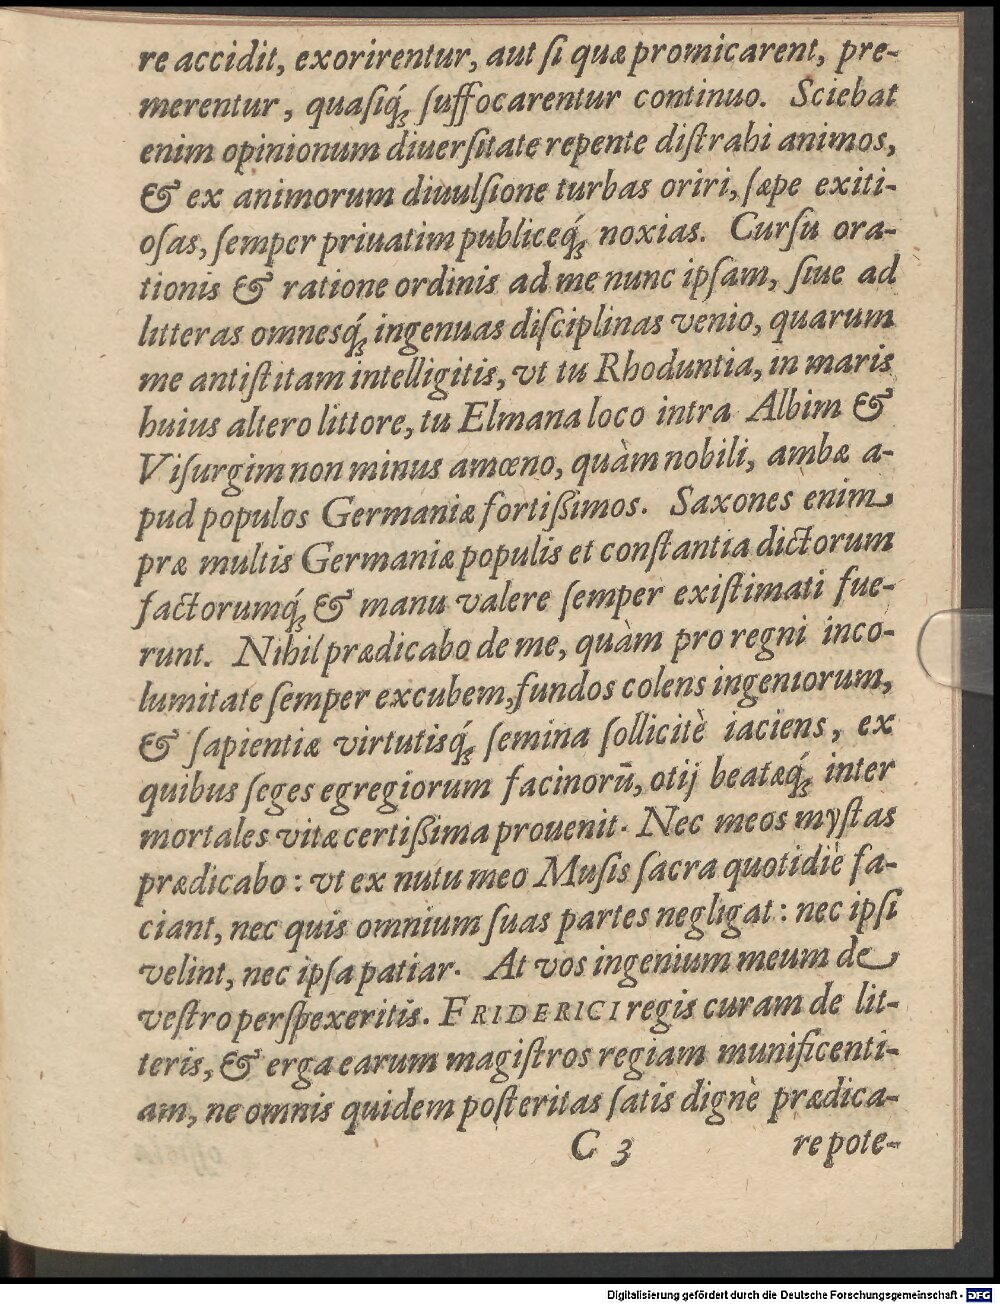 re accidit, exorirentur, aut ſi quæ promicarent, pre-
merentur, quaſiq́ꝫ ſuffocarentur continuo. Sciebat
enim opinionum diuerſitate repente diſtrahi animos,
& ex animorum diuulſione turbas oriri, ſæpe exiti-
oſas, ſemper priuatim publiceq́ꝫ noxias. Curſu ora-
tionis & ratione ordinis ad me nunc ipſam, ſiue ad
litteras omnesq́ꝫ ingenuas diſciplinas venio, quarum
me antiſtitam intelligitis, vt tu Rhoduntia, in maris
huius altero littore, tu Elmana loco intra Albim &
Viſurgim non minus amœno, quàm nobili, ambæ a-
pud populos Germaniæ fortiſsimos. Saxones enim
præ multis Germaniæ populis et conſtantia dictorum
factorumq́ꝫ & manu valere ſemper exiſtimati fue-
runt. Nihil prædicabo de me, quàm pro regni inco-
lumitate ſemper excubem, fundos colens ingeniorum,
& ſapientiæ virtutisq́ꝫ ſemina ſollicitè iaciens, ex
quibus ſeges egregiorum facinorū, otij beatæq́ꝫ inter
mortales vitæ certiſsima prouenit. Nec meos myſtas
prædicabo: vt ex nutu meo Muſis ſacra quotidiè fa-
ciant, nec quis omnium ſuas partes negligat: nec ipſi
velint, nec ipſa patiar. At vos ingenium meum de
veſtro perſpexeritis. FRIDERICI regis curam de lit-
teris, & erga earum magiſtros regiam munificenti-
am, ne omnis quidem poſteritas ſatis dignè prædica-
C 3 re pote-
Digitalisierung gefördert durch die Deutsche Forschungsgemeinschaft - DFG